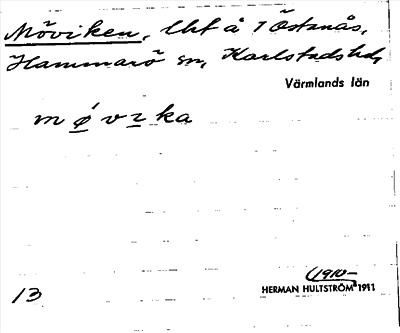 Möviken, lht å 1 Östanås,
Hammarö sn, Karlstads hd,
Värmlands län
m ǿ v ɩ ka
(1910–
HERMAN HULTSTRÖM 1911
13